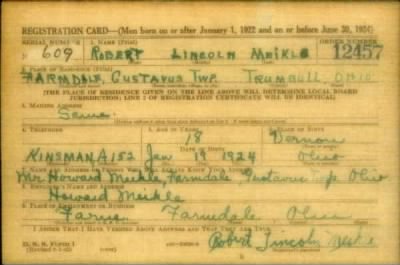 REGISTRATION CARD—(Men born on or after January 1, 1922 and on or before June 30, 1924)
SERIAL NUMBER 1. NAME (Print) ORDER NUMBER
609 ROBERT LINCOLN MEIKLE 12457
2. PLACE OF RESIDENCE (Print)
FARMDALE, GUSTAVUS TWP. TRUMBULL, OHIO
[THE PLACE OF RESIDENCE GIVEN ON THE LINE ABOVE WILL DETERMINE LOCAL BOARD
JURISDICTION; LINE 2 OF REGISTRATION CERTIFICATE WILL BE IDENTICAL]
3. MAILING ADDRESS
Same
4. TELEPHONE 5. AGE IN YEARS 6. PLACE OF BIRTH
18 Vernon
DATE OF BIRTH
KINSMAN A152 Jan 19 1924 Ohio
7. NAME AND ADDRESS OF PERSON WHO WILL ALWAYS KNOW YOUR ADDRESS
Mr. Howard Meikle, Farmdale Gustavus Twp. Ohio
8. EMPLOYER'S NAME AND ADDRESS
Howard Meikle
9. PLACE OF EMPLOYMENT OR BUSINESS
Farm Farmdale Ohio
I AFFIRM THAT I HAVE VERIFIED ABOVE ANSWERS AND THAT THEY ARE TRUE.
D. S. S. Form 1
Robert Lincoln Meikle